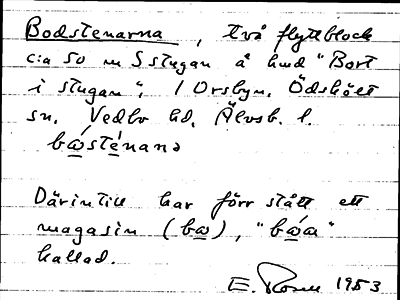 Bodstenarna, två flyttblock
c:a 50 m S stugan å hmd "Bort
i stugan", i Orsbyn, Ödskölt
sn, Vedbo hd, Älvsb. l.
Därintill har förr stått ett
magasin
kallad.
E. 1953